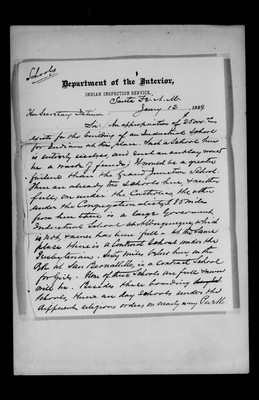 Schools
Department of the Interior,
INDIAN INSPECTION SERVICE,
Santa Fe N.M.
Jany 12 1889
Hon Secretary Interior.
Sir: An appropriation of $25000
exists for the building of an Industrial School
for Indians at this place. Such a School here
is entirely useless, and such an outlay would
be a waste of funds, & would be a greater
failure than the Grand Junction School.
There are already two Schools here, &
full, one under the Catholics, the other
under the Congregationalists. 85 miles
from here there is a large Government
Industrial School at Albuquerque, which
is not, & never has been full - at the same
place there is a Contract School under the
Presbyterians. Sixty miles below here on the
RR at San Bernalillo, is a Contract School
for Girls. None of these Schools are full & never
will be. Besides these boarding
schools, there are day schools under the
different religious orders on nearly every Pueblo